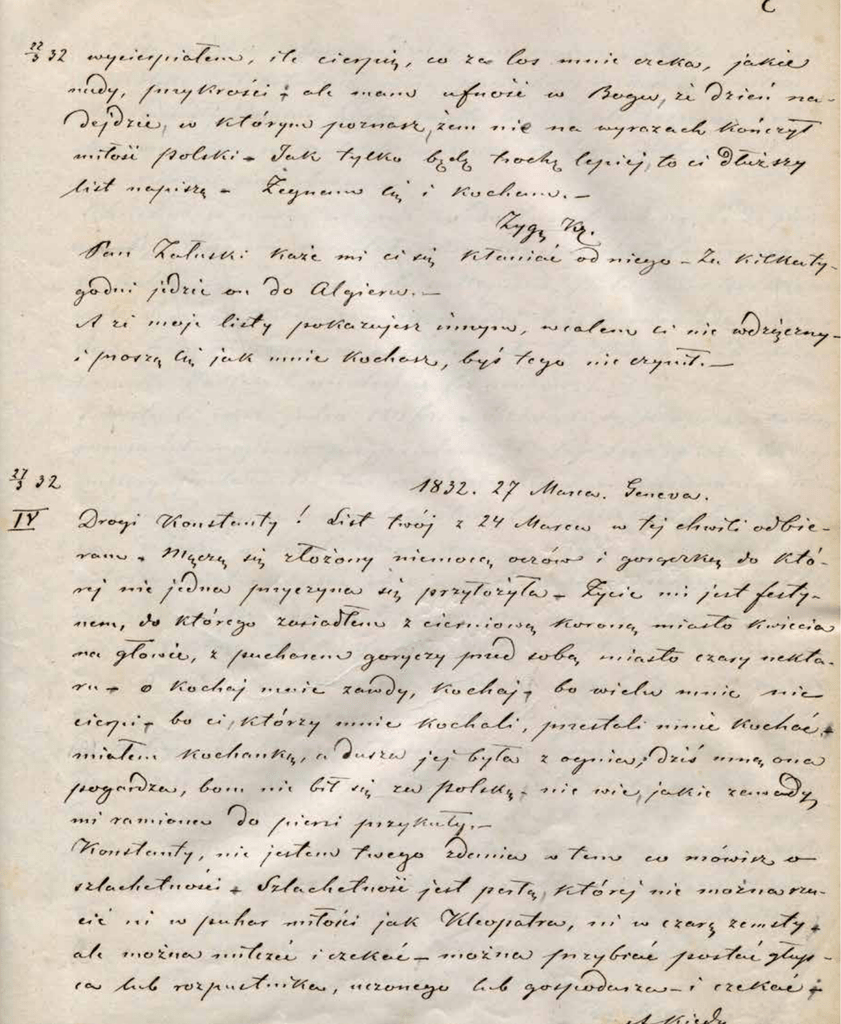 22/3 32 wycierpiałem, ile cierpię, co za los mnie czeka, jakie
nudy, przykrości + ale mam ufność w Bogu, że dzień na-
dejdzie, w którym poznasz, żem nie na wyrazach kończył
miłość Polski. Jak tylko będę trochę lepiej, to ci dłuższy
list napiszę. Żegnam cię i kocham.—
Zyg. Kr.
Pan Załuski każe mi ci się kłaniać od niego — Za kilka ty-
godni jedzie on do Algieru.—
A że moje listy pokazujesz innym, wcalem ci nie wdzięczny-
i proszę cię jak mnie kochasz, byś tego nie czynił.—
27/3 32
1832. 27 Marca. Geneva.
IV Drogi Konstanty! List twój z 24 Marca w tej chwili odbie-
ram. Męczę się złożony niemocą oczów i gorączką do któ-
rej nie jedna przyczyna się przyłożyła. Życie mi jest festy-
nem, do którego zasiadłem z cierniową koroną miasto kwiecia
na głowie, z pucharem goryczy przed sobą miasto czary nekta-
ru + o kochaj mnie zawdy, kochaj + bo wielu mnie nie
cierpi + bo ci, którzy mnie kochali, przestali mnie kochać +
miałem kochankę, a dusza jej była z ognia, dziś mną ona
pogardza, bom nie bił się za Polskę – nie wie, jakie zawady
mi ramiona do piersi przykuły.—
Konstanty, nie jestem twego zdania w tem co mówisz o
szlachetności + Szlachetność jest perłą, której nie można rzu-
cić ni w puhar miłości jak Kleopatra, ni w czarę zemsty +
ale można milczeć i czekać — można przybrać postać głup-
ca lub rozpustnika, uczonego lub gospodarza — i czekać +
A kiedy